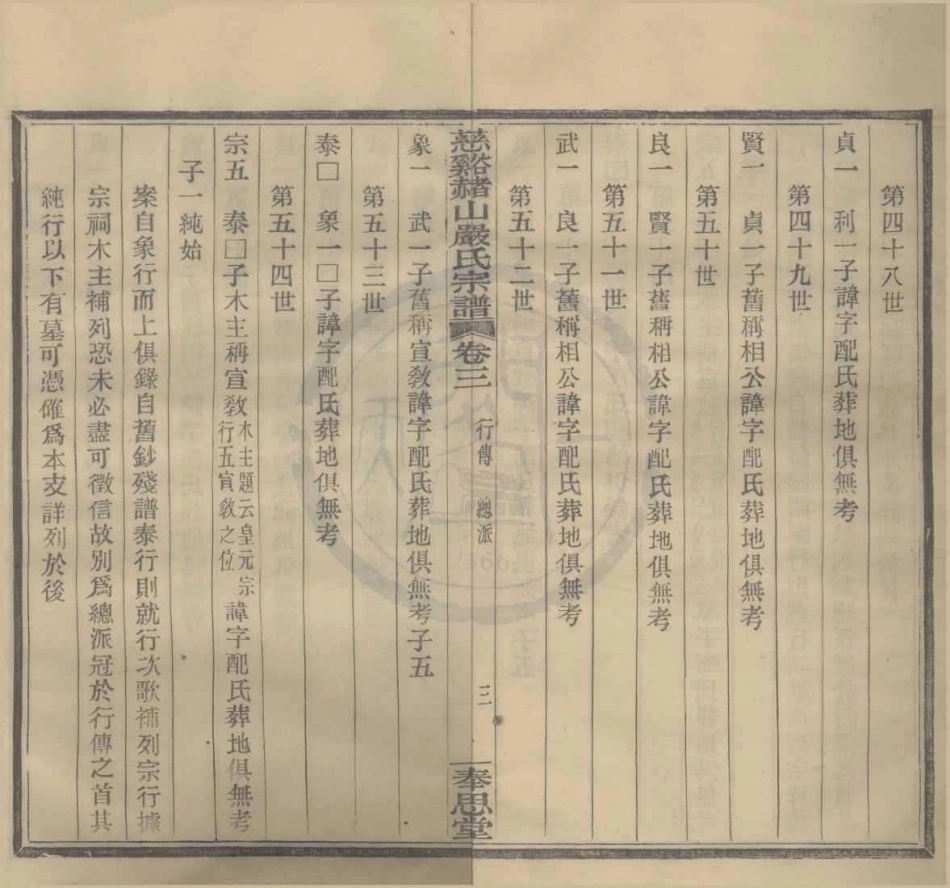 第四十八世
貞一　利一子諱字配氏葬地俱無考
第四十九世
賢一　貞一子舊稱相公諱字配氏葬地俱無考
第五十世
良一　賢一子舊稱相公諱字配氏葬地俱無考
第五十一世
武一　良一子舊稱相公諱字配氏葬地俱無考
第五十二世
慈谿赭山嚴氏宗譜　卷三　行傳　總派　三　奉思堂
象一　武一子舊稱宣敎諱字配氏葬地俱無考子五
第五十三世
泰□　象一□子諱字配氏葬地俱無考
第五十四世
宗五　泰□子木主稱宣敎木主題云皇元宗行五宣敎之位諱字配氏葬地俱無考
子一純始
案自象行而上俱錄自舊鈔殘譜泰行則就行次歌補列宗行據
宗祠木主補列恐未必盡可徵信故別爲總派冠於行傳之首其
純行以下有墓可憑確爲本支詳列於後